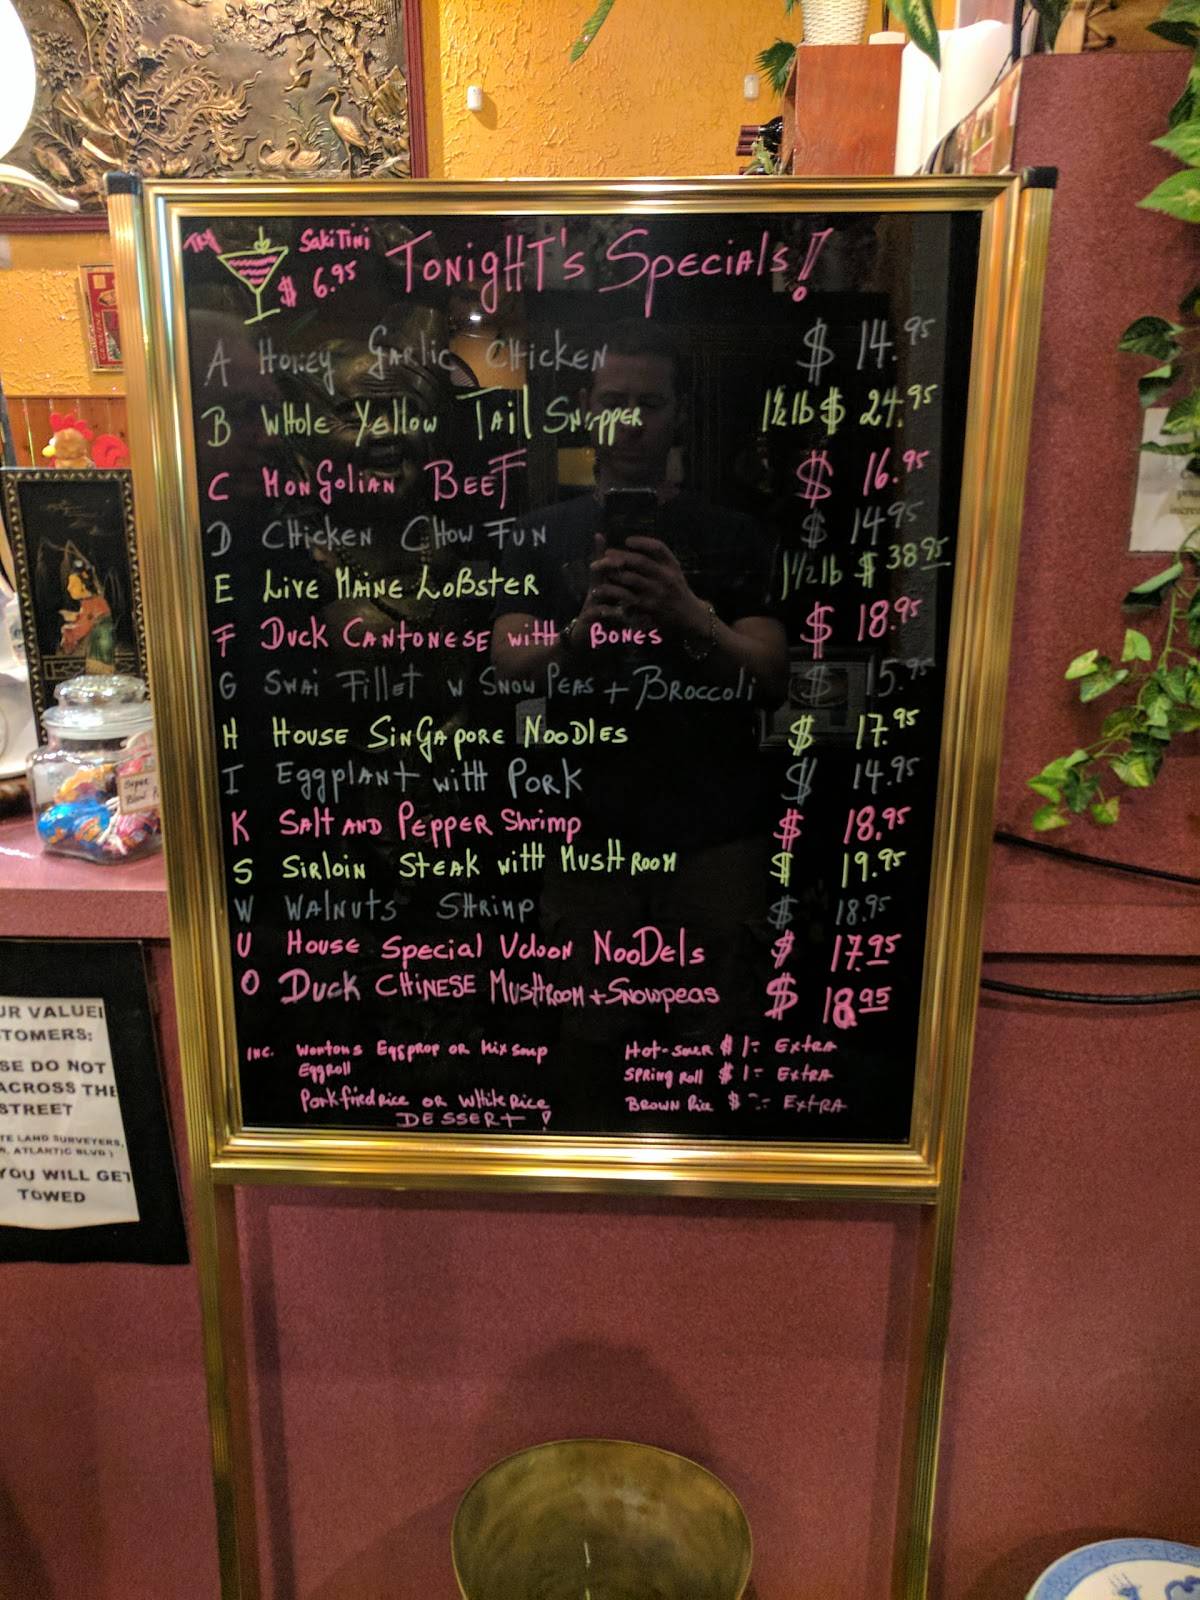 Try SakiTini
$ 6.95
Tonight's Specials!
A Honey Garlic Chicken $ 14.95
B Whole Yellow Tail Snapper 1½ lb $ 24.95
C Mongolian Beef $ 16.95
D Chicken Chow Fun $ 14.95
E Live Maine Lobster 1½ lb $ 38.95
F Duck Cantonese with Bones $ 18.95
G Swai Fillet w Snow Peas + Broccoli $ 15.95
H House Singapore Noodles $ 17.95
I Eggplant with Pork $ 14.95
K Salt and Pepper Shrimp $ 18.95
S Sirloin Steak with Mushroom $ 19.95
W Walnuts Shrimp $ 18.95
U House Special Udoon Noodels $ 17.95
O Duck Chinese Mushroom + Snowpeas $ 18.95
Inc. Wontons Eggdrop or Mix soup
Eggroll
Pork fried Rice or White Rice
DESSERT!
Hot-sour $ 1 = Extra
Spring Roll $ 1 = Extra
Brown Rice $ = Extra
SE DO NOT
ACROSS THE
STREET
ATLANTIC BLVD.)
YOU WILL GET
TOWED
Super